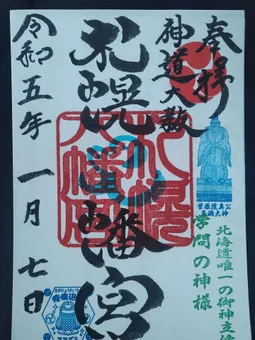 奉拝
神道大教
札幌八幡宮
令和五年
一月七日
札幌
八幡宮
菅原道真公
学問の神様
北海道唯一の御神立像